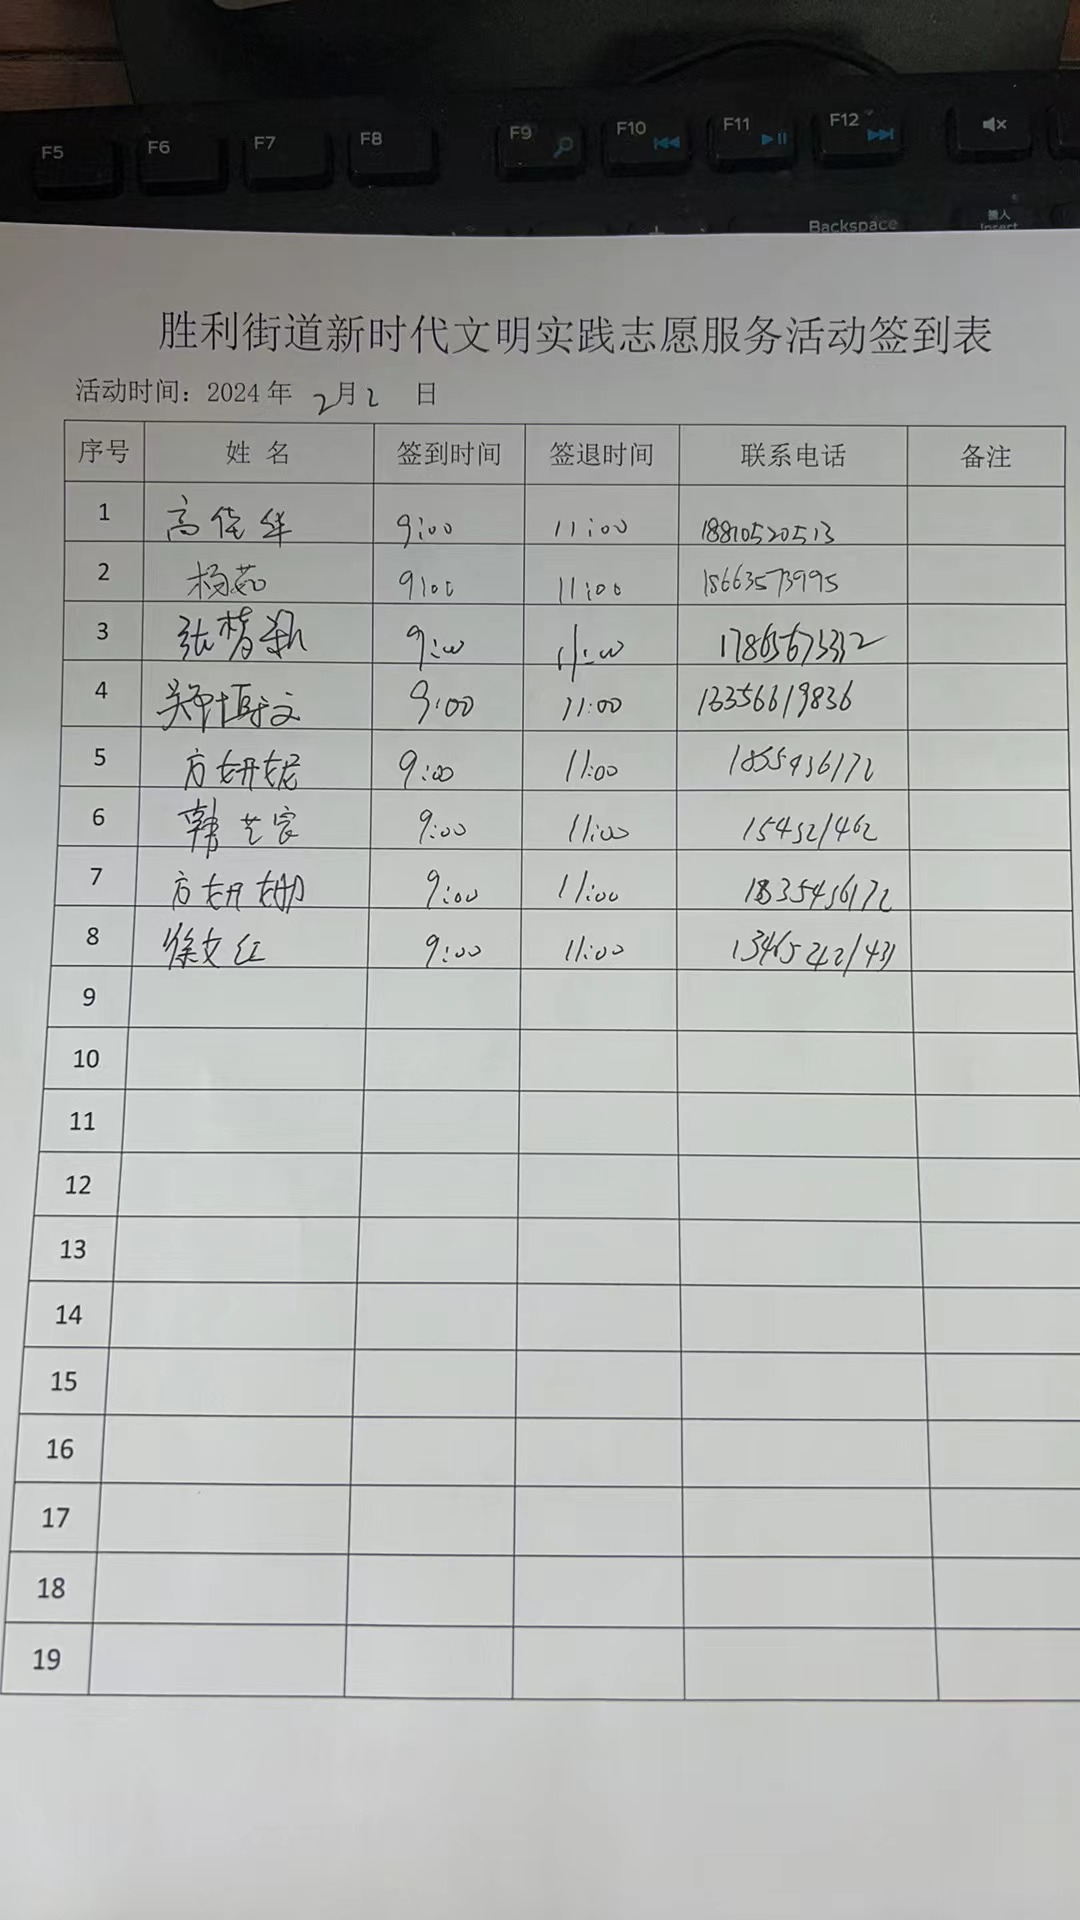 F5 F6 F7 F8 F9 F10 F11 F12
Backspace 插入
Insert
胜利街道新时代文明实践志愿服务活动签到表
活动时间：2024年 2月2 日
序号 姓 名 签到时间 签退时间 联系电话 备注
1 高佳 9:00 11:00 18810520513
2 杨茹 9:00 11:00 18663573995
3 张梦 9:00 11:00 17865673312
4 9:00 11:00 13356619836
5 方妍妮 9:00 11:00 1855436172
6 韩艺宸 9:00 11:00 154521462
7 方妍 9:00 11:00 1835456172
8 徐文红 9:00 11:00
9
10
11
12
13
14
15
16
17
18
19